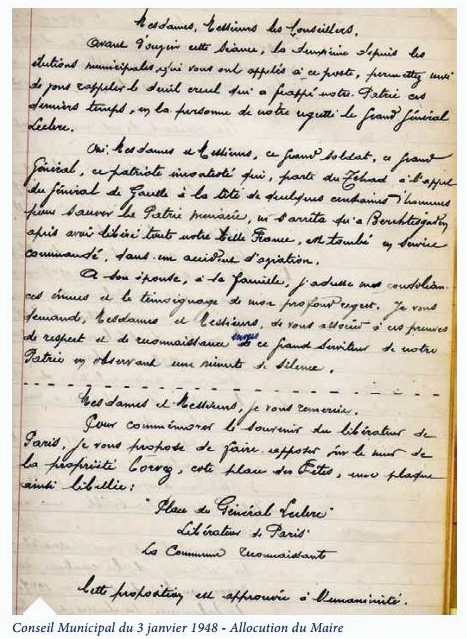 Mesdames, Messieurs les Conseillers,
Avant d'ouvrir cette séance, la deuxième depuis les
élections municipales qui vous ont appelés à ce poste, permettez moi
de vous rappeler le deuil cruel qui a frappé notre Patrie ces
derniers temps, en la personne de notre regretté le Grand Général
Leclerc.
Oui Mesdames et Messieurs, ce grand soldat, ce grand
Général, ce patriote incontesté qui, parti du Tchad à l'appel
du Général de Gaulle à la tête de quelques centaines d'hommes
pour sauver la Patrie menacée, ne s'arrêta qu'à Berchtesgaden
après avoir libéré toute notre belle France, est tombé en service
commandé, dans un accident d'aviation.
A son épouse, à sa famille, j'adresse mes condoléan-
ces émues et le témoignage de mon profond regret. Je vous
demande, Mesdames et Messieurs, de vous associer à ces preuves
de respect et de reconnaissance envers ce grand serviteur de notre
Patrie en observant une minute de silence.
Mesdames et Messieurs, je vous remercie.
Pour commémorer le souvenir du libérateur de
Paris, je vous propose de faire apposer sur le mur de
la propriété côté place des Fêtes, une plaque
ainsi libellée :
"Place du Général Leclerc"
Libérateur de Paris
La Commune reconnaissante
Cette proposition est approuvée à l'unanimité.
Conseil Municipal du 3 janvier 1948 - Allocution du Maire